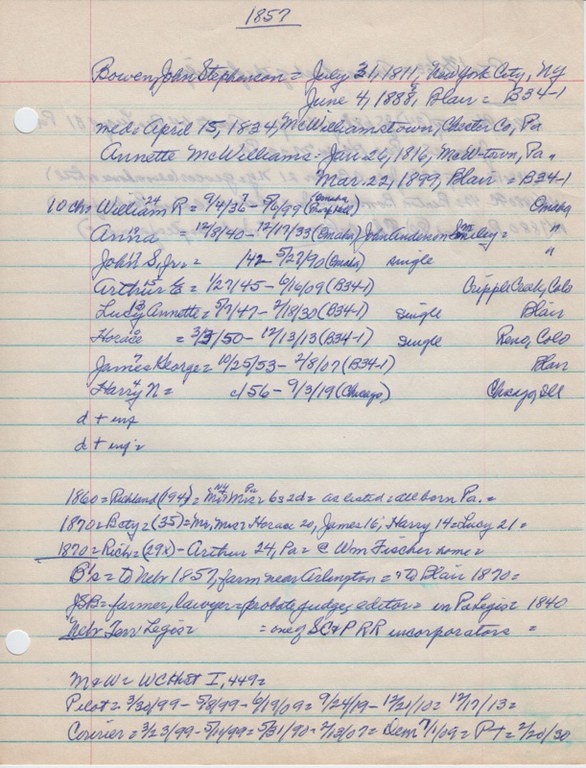 1857
Bowen, John Stephenson = July 31, 1811, New York City, NY
June 4, 1888, Blair = B34-1
med = April 15, 1834, McWilliamstown, Chester Co, Pa
Annette McWilliams = Jan 26, 1816, McW-town, Pa.
Mar. 22, 1899, Blair = B34-1
10 ch = William R = 9/4/36 - 5/6/99 (Omaha Omaha
24
Anna = 12/8/40 - 12/17/33 (Omaha) John Anderson Smiley = "
John S, Jr = /42 - 5/27/90 (Omaha) single "
Arthur = 1/27/45 - 6/16/09 (B34-1) Cripple Creek, Colo
Lucy Annette = 5/7/47 - 2/18/30 (B34-1) single Blair
Horace = 3/3/50 - 12/13/13 (B34-1) single Reno, Colo
James George = 10/25/53 - 2/8/07 (B34-1) Blair
Harry N = c/56 - 9/3/19 (Chicago) Chicago, Ill
d + inf
d + inf =
1860 = Richland (194) = Mr NY Mrs Pa = 6s 2d = as listed = all born Pa. =
1870 = Boty = (35) = Mr, Mrs = Horace 20, James 16, Harry 14 = Lucy 21 =
1870 = Rich = (29x) - Arthur 24, Pa = @ Wm Fischer home =
B's = to Nebr 1857, farm near Arlington = to Blair 1870 =
JSB = farmer, lawyer = probate judge, editor = in Pa Legis = 1840
Nebr Terr Legis = = one of SC&P RR incorporators =
M & W = WC Hist I, 449 =
Pilot = 3/30/99 - 5/8/99 - 6/19/09 = 9/24/19 - 12/21/10 = 12/17/13 =
Courier = 3/23/99 - 5/11/99 = 5/31/90 - 2/13/07 = Dem 7/1/09 = PT = 2/20/30